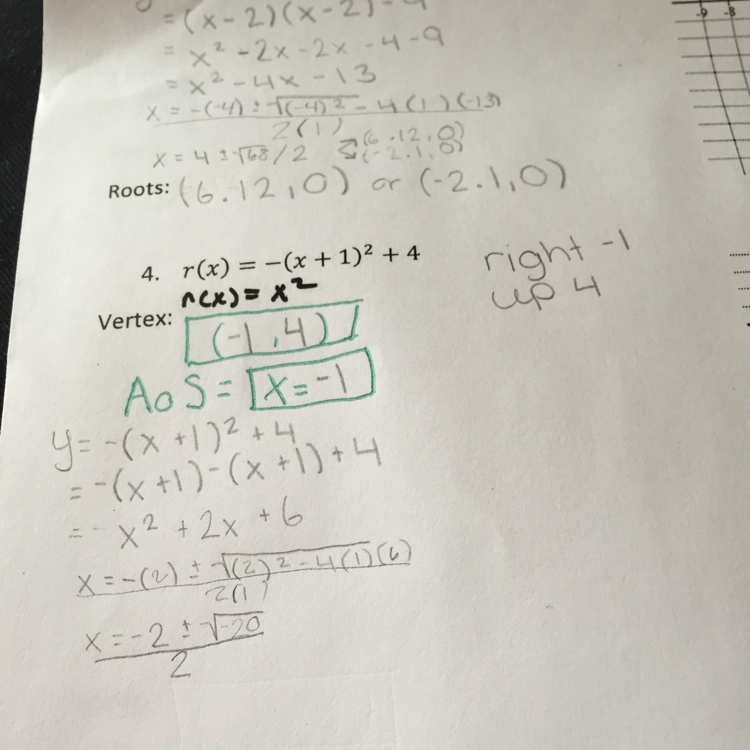 = (x-2)(x-2)-9
= x² -2x -2x -4 -9
= x² -4x -13
x = -(-4) ± √(-4)² - 4(1)(-13)
2(1)
(6.12,0)
(-2.1,0)
x = 4 ± √68 / 2
Roots: (6.12,0) or (-2.1,0)
4. r(x) = −(x + 1)² + 4
right -1
up 4
r(x) = x²
Vertex: (-1,4)
AoS = x = -1
y = -(x+1)² + 4
= -(x+1)-(x+1)+4
= -x² + 2x + 6
x = -(2) ± √(2)² - 4(1)(6)
2(1)
x = -2 ± √-20
2
-9 -8